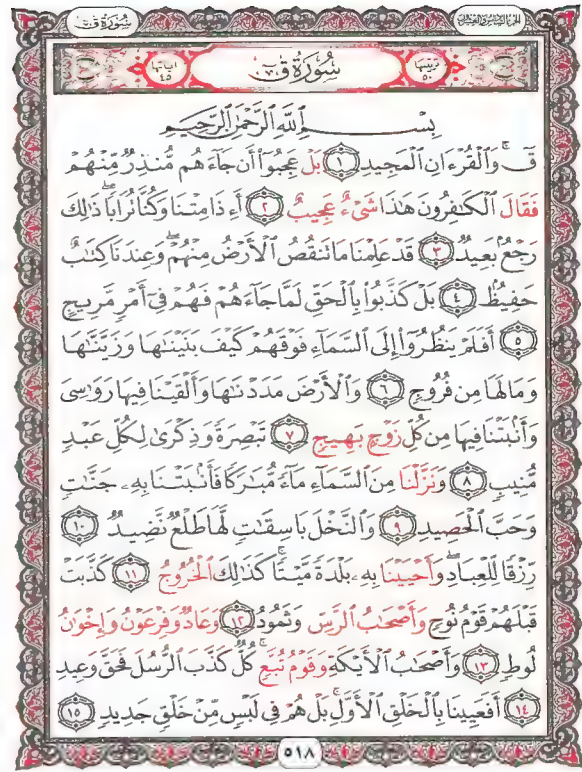 سُورَةُ قٓ
الجزء السادس والعشرون
سُورَةُ قٓ
ترتيبها ٥٠
آياتها ٤٥
بِسْمِ ٱللَّهِ ٱلرَّحْمَٰنِ ٱلرَّحِيمِ
قٓ ۚ وَٱلْقُرْءَانِ ٱلْمَجِيدِ ١ بَلْ عَجِبُوٓا۟ أَن جَآءَهُم مُّنذِرٌ مِّنْهُمْ
فَقَالَ ٱلْكَٰفِرُونَ هَٰذَا شَىْءٌ عَجِيبٌ ٢ أَءِذَا مِتْنَا وَكُنَّا تُرَابًا ۖ ذَٰلِكَ
رَجْعٌۢ بَعِيدٌ ٣ قَدْ عَلِمْنَا مَا تَنقُصُ ٱلْأَرْضُ مِنْهُمْ ۖ وَعِندَنَا كِتَٰبٌ
حَفِيظٌۢ ٤ بَلْ كَذَّبُوا۟ بِٱلْحَقِّ لَمَّا جَآءَهُمْ فَهُمْ فِىٓ أَمْرٍ مَّرِيجٍ
٥ أَفَلَمْ يَنظُرُوٓا۟ إِلَى ٱلسَّمَآءِ فَوْقَهُمْ كَيْفَ بَنَيْنَٰهَا وَزَيَّنَّٰهَا
وَمَا لَهَا مِن فُرُوجٍ ٦ وَٱلْأَرْضَ مَدَدْنَٰهَا وَأَلْقَيْنَا فِيهَا رَوَٰسِىَ
وَأَنۢبَتْنَا فِيهَا مِن كُلِّ زَوْجٍۭ بَهِيجٍ ٧ تَبْصِرَةً وَذِكْرَىٰ لِكُلِّ عَبْدٍ
مُّنِيبٍ ٨ وَنَزَّلْنَا مِنَ ٱلسَّمَآءِ مَآءً مُّبَٰرَكًا فَأَنۢبَتْنَا بِهِۦ جَنَّٰتٍ
وَحَبَّ ٱلْحَصِيدِ ٩ وَٱلنَّخْلَ بَاسِقَٰتٍ لَّهَا طَلْعٌ نَّضِيدٌ ١٠
رِّزْقًا لِّلْعِبَادِ ۖ وَأَحْيَيْنَا بِهِۦ بَلْدَةً مَّيْتًا ۚ كَذَٰلِكَ ٱلْخُرُوجُ ١١ كَذَّبَتْ
قَبْلَهُمْ قَوْمُ نُوحٍ وَأَصْحَٰبُ ٱلرَّسِّ وَثَمُودُ ١٢ وَعَادٌ وَفِرْعَوْنُ وَإِخْوَٰنُ
لُوطٍ ١٣ وَأَصْحَٰبُ ٱلْأَيْكَةِ وَقَوْمُ تُبَّعٍ ۚ كُلٌّ كَذَّبَ ٱلرُّسُلَ فَحَقَّ وَعِيدِ
١٤ أَفَعَيِينَا بِٱلْخَلْقِ ٱلْأَوَّلِ ۚ بَلْ هُمْ فِى لَبْسٍ مِّنْ خَلْقٍ جَدِيدٍ ١٥
٥١٨